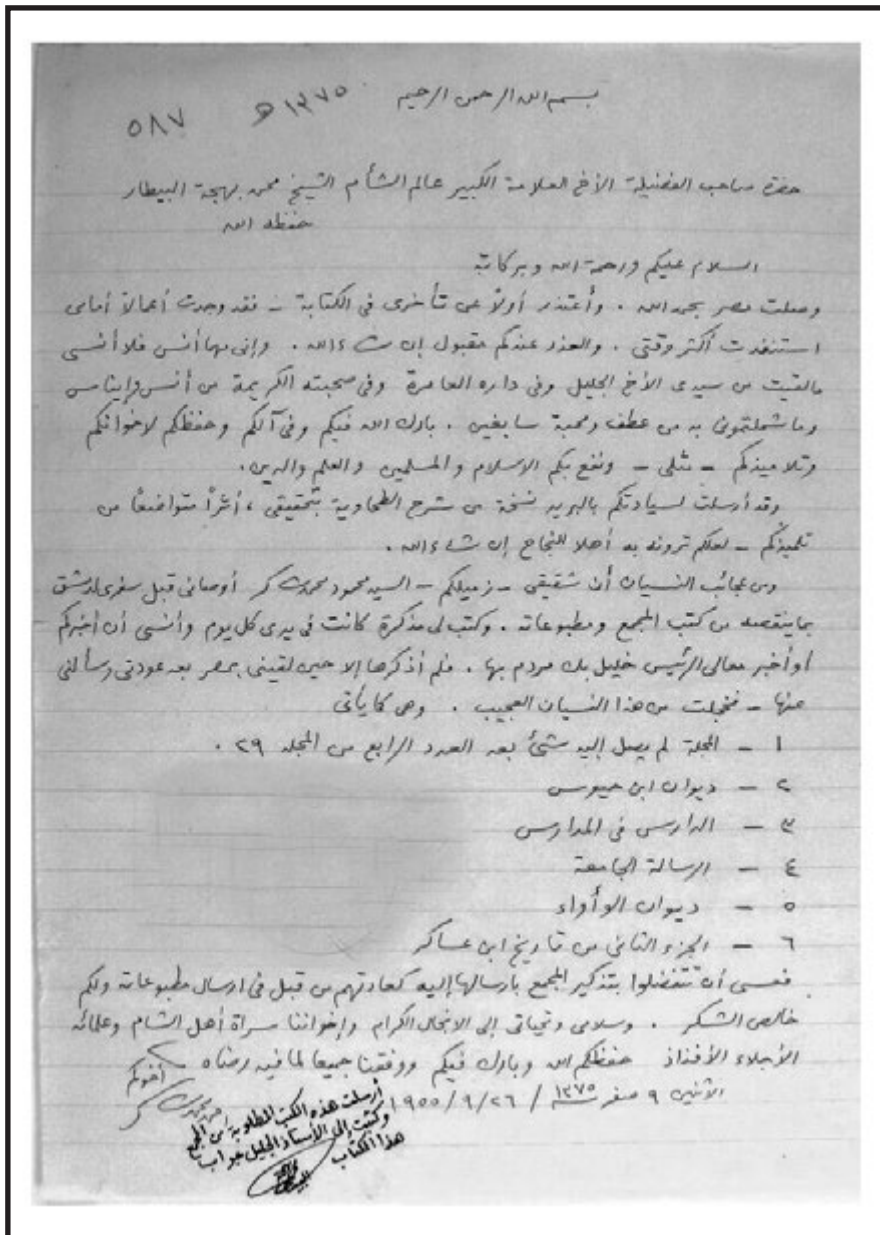 بسم الله الرحمن الرحيم
١٣٧٥ هـ
٥٨٧
حضرة صاحب الفضيلة الأخ العلامة الكبير عالم الشأم الشيخ محمد بهجة البيطار
حفظه الله
السلام عليكم ورحمة الله وبركاته
وصلت مصر بحمد الله . وأعتذر أولاً عن تأخرى فى الكتابة – فقد وجدت أعمالاً أمامى
استنفدت أكثر وقتى . والعذر عندكم مقبول إن شاء الله . وإنى مهما أنس فلا أنسى
مالقيت من سيدى الأخ الجليل وفى داره العامرة وفى صحبته الكريمة من أنس وإيناس
وما شملتمونى به من عطف ومحبة سابغين . بارك الله فيكم وفى آلكم وحفظكم لاخوانكم
وتلاميذكم – مثلى – ونفع بكم الاسلام والمسلمين والعلم والدين .
وقد أرسلت لسيادتكم بالبريد نسخة من شرح الطحاوية بتحقيقى ، أثراً متواضعاً من
تلميذكم – لعلكم ترونه أهلا للنجاح إن شاء الله .
ومن عجائب النسيان أن شقيقى – زميلكم – السيد محمود محمد شاكر أوصانى قبل سفرى لدمشق
بما ينقصه من كتب المجمع ومطبوعاته . وكتب لى مذكرة كانت فى يدى كل يوم وأنسى أن أخبركم
أو أخبر معالى الرئيس خليل بك مردم بها . فلم أذكرها إلا حين لقينى بمصر بعد عودتى وسألنى
عنها – فخجلت من هذا النسيان العجيب . وهى كما يأتى
١ – المجلة لم يصل إليه شئ بعد العدد الرابع من المجلد ٢٩ .
٢ – ديوان ابن حيوس
٣ – الدارس فى المدارس
٤ – الرسالة الجامعة
٥ – ديوان الوأواء
٦ – الجزء الثانى من تاريخ ابن عساكر
فعسى أن تتفضلوا بتذكير المجمع بارسالها إليه كعادتهم من قبل فى ارسال مطبوعاته ولكم
خالص الشكر . وسلامى وتحياتى إلى الانجال الكرام وإخواننا سراة أهل الشام وعلمائه
الأجلاء الأفذاذ حفظكم الله وبارك فيكم ووفقنا جميعا لما فيه رضاه – أخوكم
الاثنين ٩ صفر سنة ١٣٧٥ / ٢٦ / ٩ / ١٩٥٥ أحمد محمد شاكر
أرسلت هذه الكتب المطلوبة من المجمع
وكتبت إلى الأستاذ الجليل جواب
هذا الكتاب